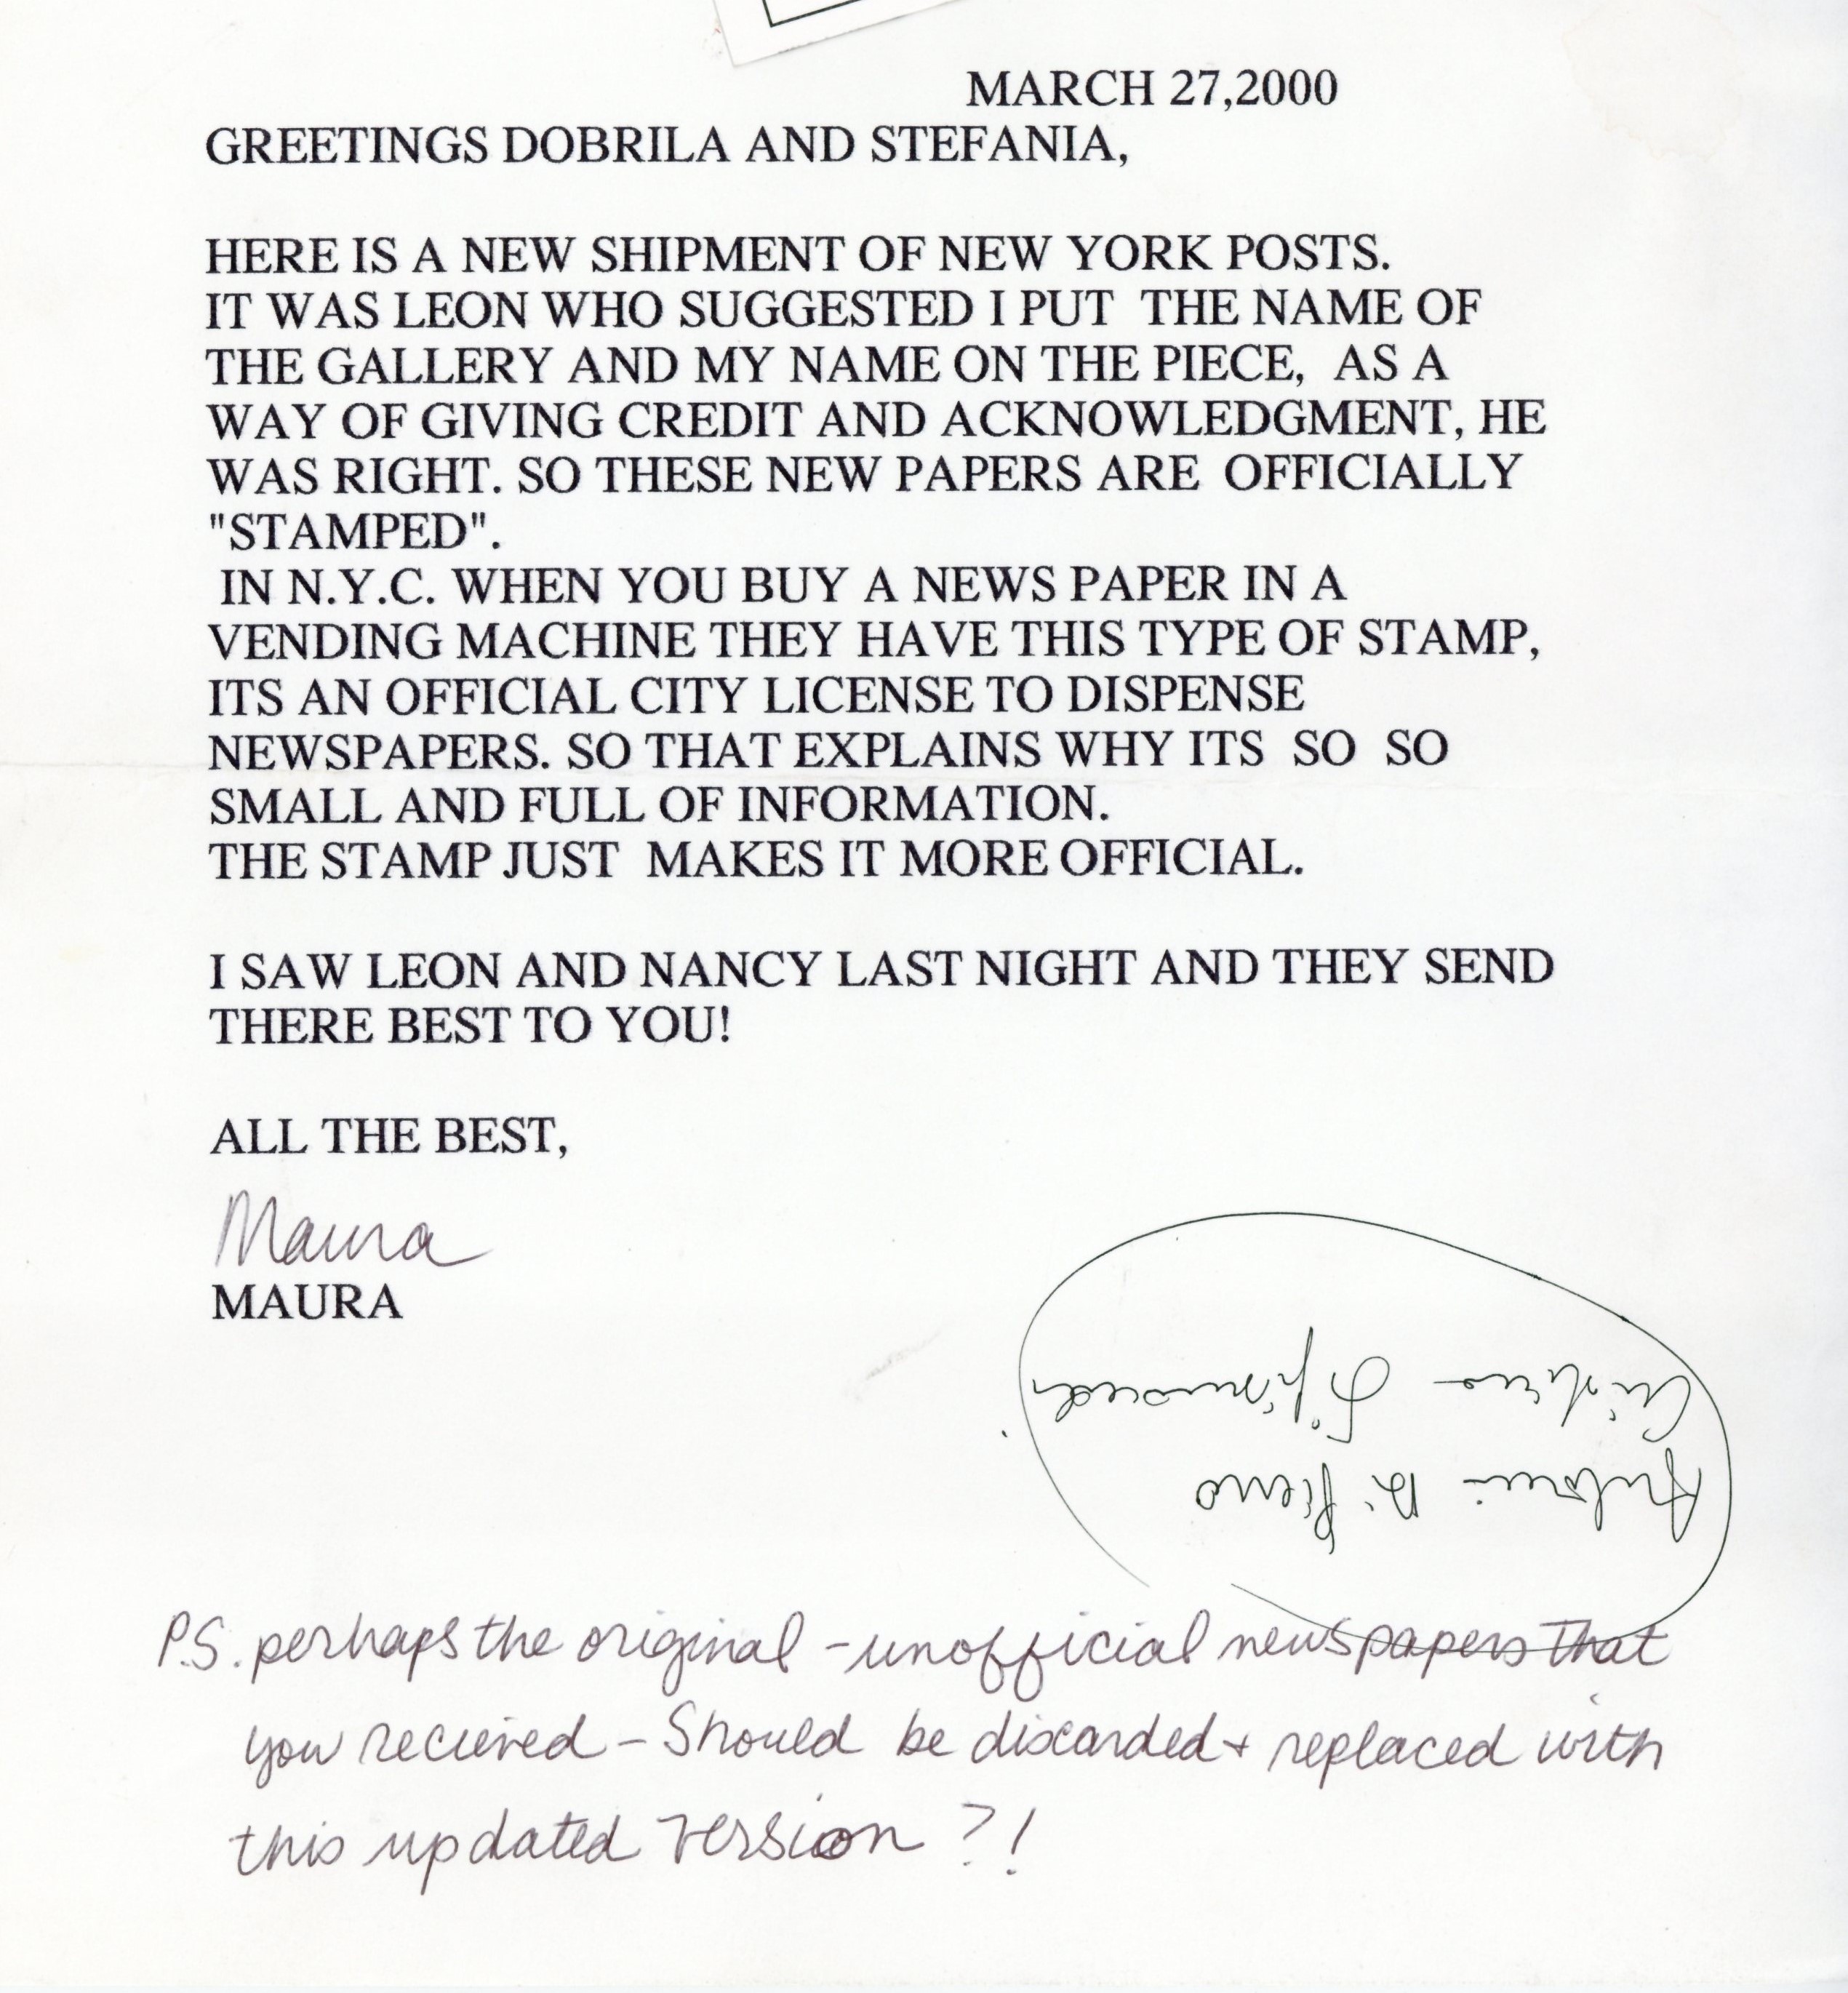 MARCH 27,2000
GREETINGS DOBRILA AND STEFANIA,
HERE IS A NEW SHIPMENT OF NEW YORK POSTS.
IT WAS LEON WHO SUGGESTED I PUT THE NAME OF
THE GALLERY AND MY NAME ON THE PIECE, AS A
WAY OF GIVING CREDIT AND ACKNOWLEDGMENT, HE
WAS RIGHT. SO THESE NEW PAPERS ARE OFFICIALLY
"STAMPED".
IN N.Y.C. WHEN YOU BUY A NEWS PAPER IN A
VENDING MACHINE THEY HAVE THIS TYPE OF STAMP,
ITS AN OFFICIAL CITY LICENSE TO DISPENSE
NEWSPAPERS. SO THAT EXPLAINS WHY ITS SO SO
SMALL AND FULL OF INFORMATION.
THE STAMP JUST MAKES IT MORE OFFICIAL.
I SAW LEON AND NANCY LAST NIGHT AND THEY SEND
THERE BEST TO YOU!
ALL THE BEST,
Maura
MAURA
Di Piero
P.S. perhaps the original - unofficial newspapers that
you recieved - Should be discarded + replaced with
this updated version ?!